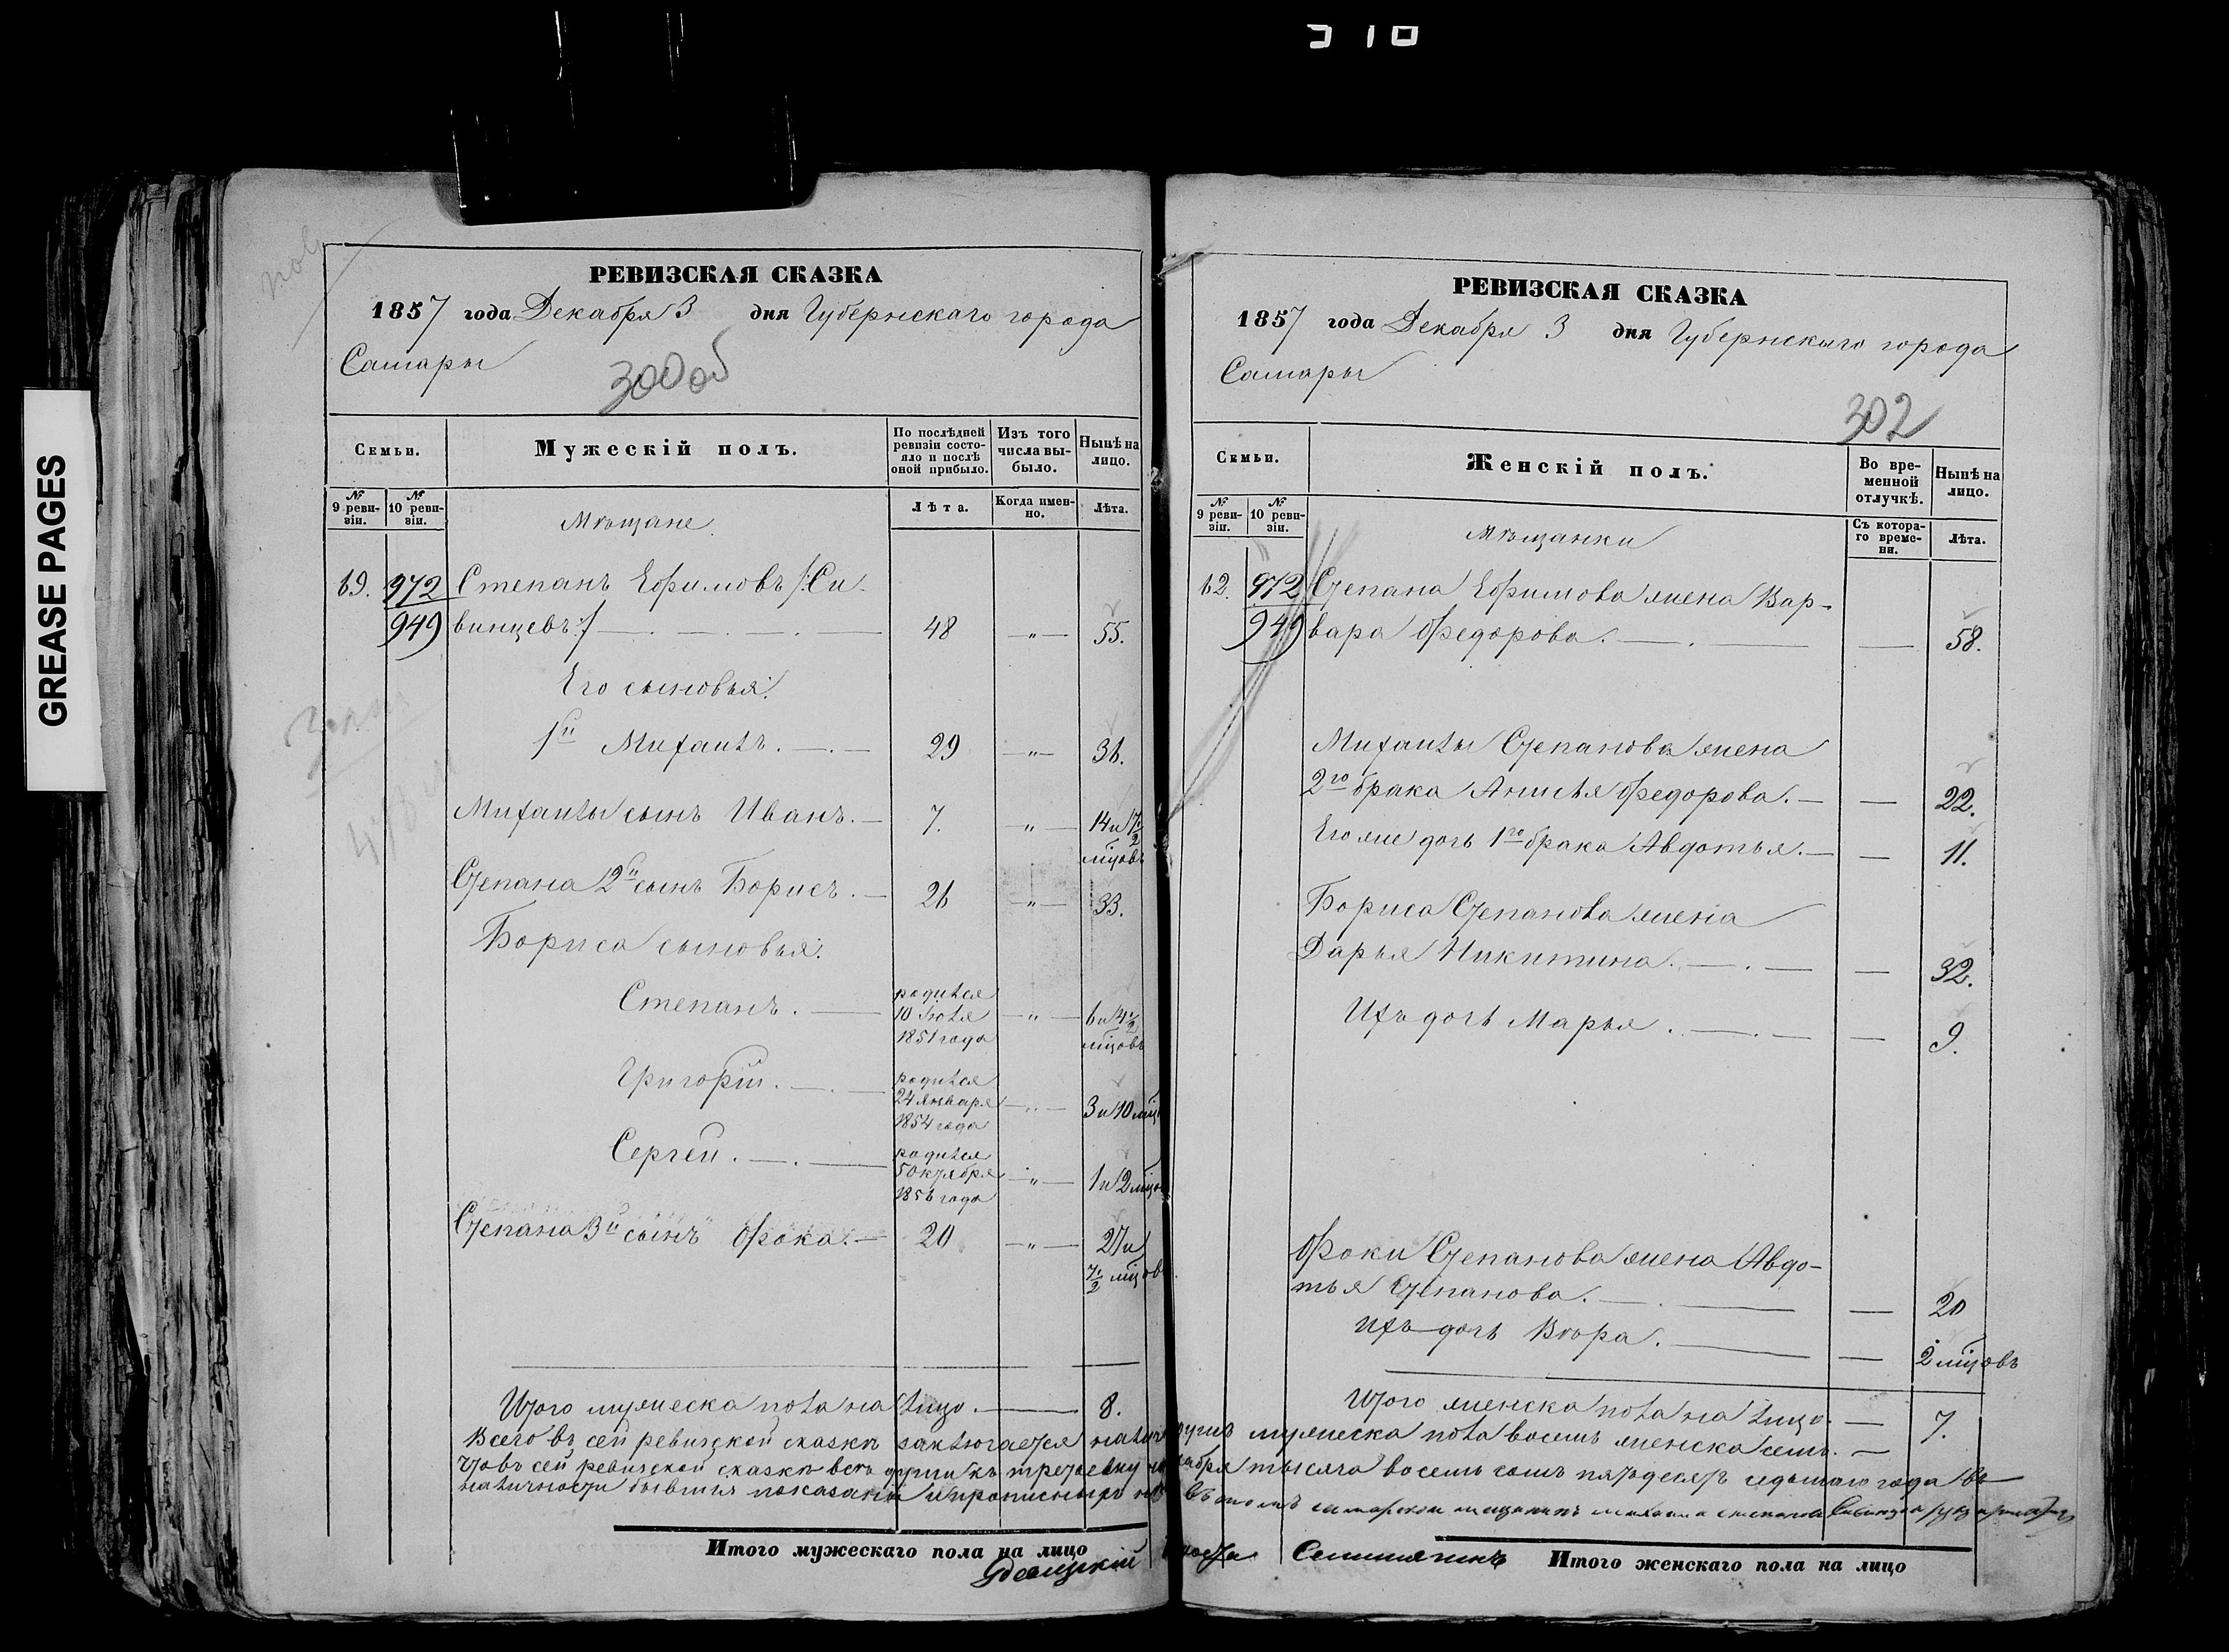 310
GREASE PAGES
РЕВИЗСКАЯ СКАЗКА
1857 года Декабря 3 дня Губернскаго города
Самары
300 об
Семьи.
Мужескій полъ.
По послѣдней ревизіи состояло и послѣ оной прибыло.
Изъ того числа выбыло.
Нынѣ на лицо.
№ 9 ревизіи.
№ 10 ревизіи.
Мѣщане.
Лѣта.
Когда именно.
Лѣта.
69. 972 Степанъ Ефимовъ /:Си-
949 винцевъ:/ 48 " 55.
Его сыновья:
1й Михаилъ. 29 " 36.
Михаилы сынъ Иванъ. 7. " 14 и 7 1/2 мцовъ
Степана 2й сынъ Борисъ. 26 " 33.
Бориса сыновья:
Степанъ. родился 10 Іюля 1851 года " 6 и 4 1/2 мцовъ
Григорій. родился 24 Января 1854 года " 3 и 10 мцо
Сергѣй. родился 5 Октября 1856 года " 1 и 2 мцо
Степана 3й сынъ Фока. 20 " 27 и 7 1/2 мцов
Итого мужеска пола на лицо. 8.
РЕВИЗСКАЯ СКАЗКА
1857 года Декабря 3 дня Губернскаго города
Самары
302
Семьи.
Женскій полъ.
Во временной отлучкѣ.
Нынѣ на лицо.
№ 9 ревизіи.
№ 10 ревизіи.
Мѣщанки
Съ котораго времени.
Лѣта.
62. 972 Степана Ефимова жена Вар-
949 вара Федорова. 58.
Михаилы Степанова жена
2го брака Анисья Федорова. 22.
Его же дочь 1го брака Авдотья. 11.
Бориса Степанова жена
Дарья Никитина. 32.
Ихъ дочь Марья. 9.
Фоки Степанова жена Авдо-
тья Степанова. 20
Ихъ дочь Вѣра. 2 мцовъ
Итого женска пола на лицо. 7.
Всего въ сей ревизской сказкѣ заключается налич душъ мужеска пола восемь женска семь.
Что въ сей ревизской сказкѣ всѣ души къ третьему кабря тысяча восемь сотъ пятьдесятъ седьмаго года въ
наличности бывшія показаны и прописныхъ нѣтъ въ томъ самарской мещанинъ
Итого мужескаго пола на лицо
Итого женскаго пола на лицо